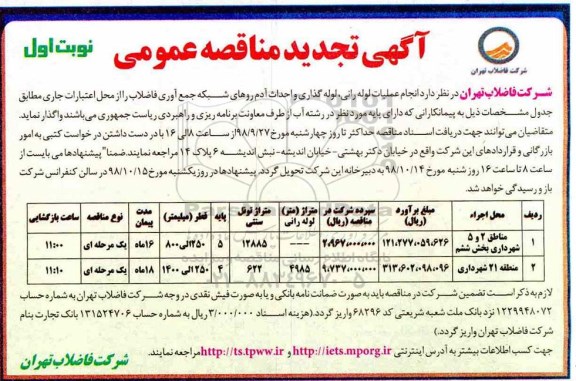 آگهی تجدید مناقصه عمومی
نوبت اول
شرکت فاضلاب تهران
شرکت فاضلاب تهران در نظر دارد انجام عملیات لوله رانی، لوله گذاری و احداث آدم روهای شبکه جمع آوری فاضلاب را از محل اعتبارات جاری مطابق
جدول مشخصات ذیل به پیمانکارانی که دارای پایه مورد نظر در رشته آب از طرف معاونت برنامه ریزی و راهبردی ریاست جمهوری می‌باشند واگذار نماید.
متقاضیان می‌توانند جهت دریافت اسناد مناقصه حداکثر تا روز چهارشنبه مورخ ۹۸/۹/۲۷ از ساعت ۸ الی ۱۶ با در دست داشتن درخواست کتبی به امور
بازرگانی و قراردادهای این شرکت واقع در خیابان دکتر بهشتی- خیابان اندیشه- نبش اندیشه ۶ پلاک ۱۴ مراجعه نمایند. ضمنا" پیشنهادها می بایست از
ساعت ۸ تا ساعت ۱۶ روز شنبه مورخ ۹۸/۱۰/۱۴ به دبیرخانه این شرکت تحویل گردد. پیشنهادها در روز یکشنبه مورخ ۹۸/۱۰/۱۵ در سالن کنفرانس شرکت
باز و رسیدگی خواهد شد.
ردیف محل اجراء مبلغ برآورد (ریال) سپرده شرکت در مناقصه (ریال) متراژ (متر) لوله رانی متراژ تونل سنتی پایه قطر (میلیمتر) مدت پیمان نوع مناقصه ساعت بازگشایی
۱ مناطق ۲ و ۵ شهرداری بخش ششم ۱۲۱،۲۷۷،۰۵۹،۶۲۶ ۲،۹۶۷،۰۰۰،۰۰۰ ۱۲۸۸۵ ۵ ۲۵۰ الی ۸۰۰ ۱۶ماه یک مرحله ای ۱۱:۰۰
۲ منطقه ۲۱ شهرداری ۳۱۳،۶۰۲،۰۹۸،۰۹۶ ۹،۷۳۷،۰۰۰،۰۰۰ ۴۹۸۵ ۶۲۲ ۴ ۲۵۰ الی ۱۴۰۰ ۱۸ماه یک مرحله ای ۱۱:۱۰
لازم به ذکر است تضمین شرکت در مناقصه باید به صورت ضمانت نامه بانکی و یا به صورت فیش نقدی در وجه شرکت فاضلاب تهران به شماره حساب
۱۲۲۹۹۴۸۰۷۲ نزد بانک ملت شعبه شریعتی کد ۶۸۲۹۶ واریز گردد.(هزینه اسناد ۳/۰۰۰/۰۰۰ ریال به شماره حساب ۱۳۱۵۲۴۷۰۶ بانک تجارت بنام
شرکت فاضلاب تهران واریز گردد.)
جهت کسب اطلاعات بیشتر به آدرس اینترنتی http://iets.mporg.ir و http://ts.tpww.ir مراجعه نمایند.
شرکت فاضلاب تهران